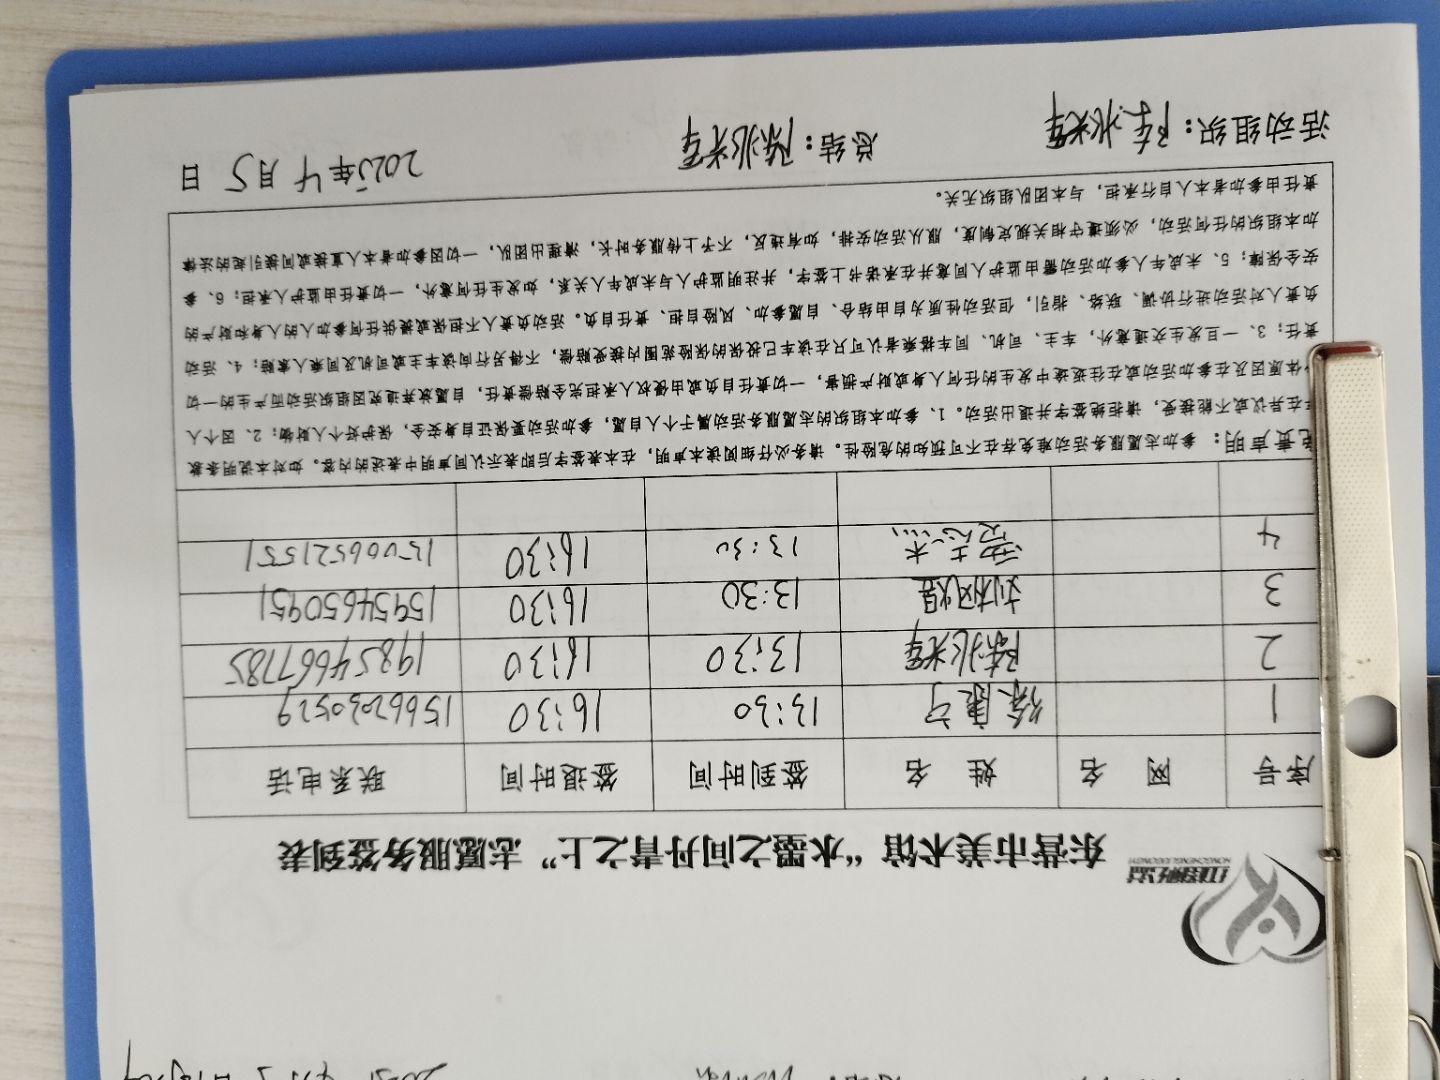 东营市美术馆“水墨之间丹青之上”志愿服务签到表
序号 网 名 姓 名 签到时间 签退时间 联系电话
1 徐康宁 13:30 16:30 15662030529
2 陈兆军 13:30 16:30 19854667785
3 刘枫煜 13:30 16:30 15954650951
4 13:30 16:30 15006521551
免责声明：参加志愿服务活动难免存在不可预知的危险性。请务必仔细阅读本声明，在本表签字后即表示认同声明中表述的内容。如对本说明条款
存在异议或不能接受，请拒绝签字并退出活动。1、参加本组织的志愿服务活动属于个人自愿，参加活动要保证自身安全，保护好个人财物；2、因个人
身体原因及在参加活动或在往返途中发生的任何人身或财产损害，一切责任自负或由侵权人承担完全赔偿责任，自愿放弃追究因组织活动而产生的一切
责任；3、一旦发生交通意外，车主、司机、同车搭乘者认可只在该车已投保的保险范围内接受赔偿，不得另行向该车主或司机及同乘人索赔；4、活动
负责人对活动进行协调、联络、指引，但活动性质为自由结合、自愿参加、风险自担、责任自负。活动负责人不担保或提供任何参加人的人身和财产的
安全保障；5、未成年人参加活动需由监护人同意并在承诺书上签字，并注明监护人与未成年人关系，如发生任何意外，一切责任由监护人承担；6、参
加本组织的任何活动，必须遵守相关规定制度，服从活动安排，如有违反，不予上传服务时长，清理出团队，一切因参加者本人直接或间接引起的法律
责任由参加者本人自行承担，与本团队组织无关。
活动组织：陈兆军 总结：陈兆军 2025年4月5日